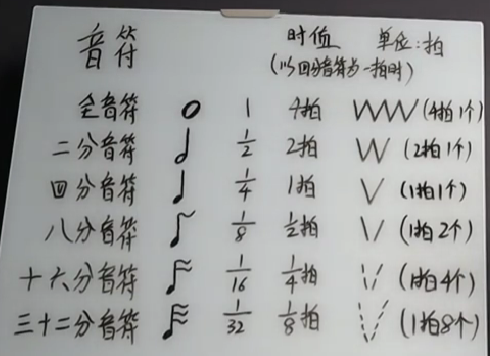 音符 时值 单位:拍
(以四分音符为一拍时)
全音符 1 4拍 (4拍1个)
二分音符 1/2 2拍 (2拍1个)
四分音符 1/4 1拍 (1拍1个)
八分音符 1/8 1/2拍 (1拍2个)
十六分音符 1/16 1/4拍 (1拍4个)
三十二分音符 1/32 1/8拍 (1拍8个)